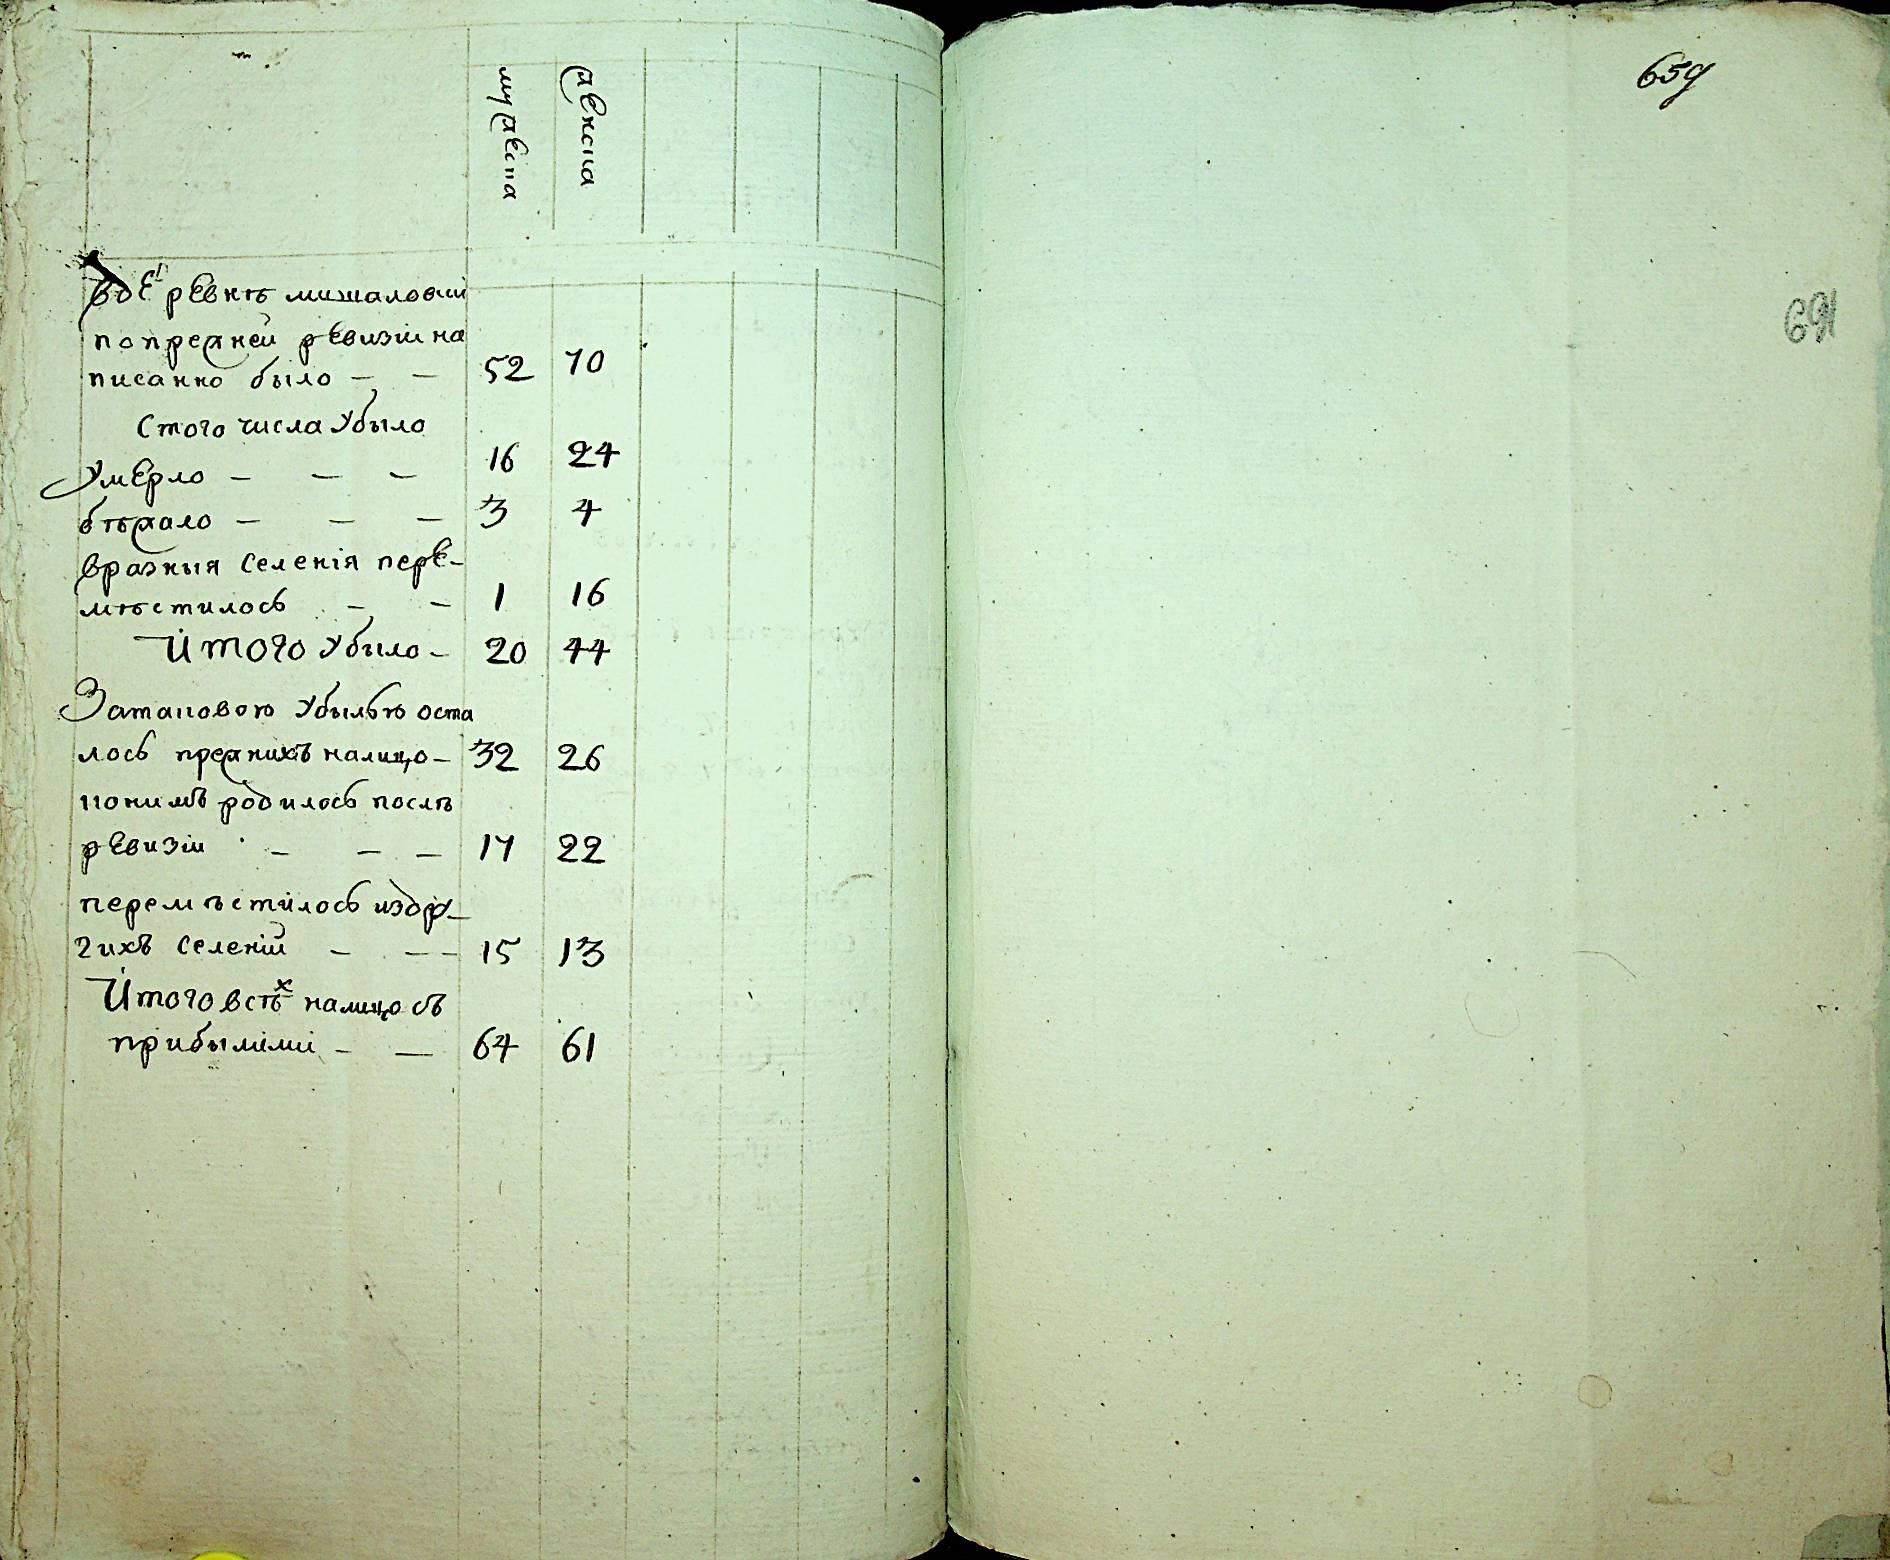 мужеска
женска
Вдеревнѣ мишаловки
попрежней ревизіи на
писанно было — — 52 70
Стого числа убыло
умерло — — — 16 24
бѣжало — — — 3 4
вразныя селенія пере-
мѣстилось — — 1 16
Итого убыло — 20 44
Затаковою убылью оста
лось прежнихъ налицо — 32 26
понимъ родилось послѣ
ревизіи — — — 17 22
перемѣстилось издру-
гихъ селеній — — — 15 13
Итого всѣх налицо съ
прибылыми — — 64 61
659
691